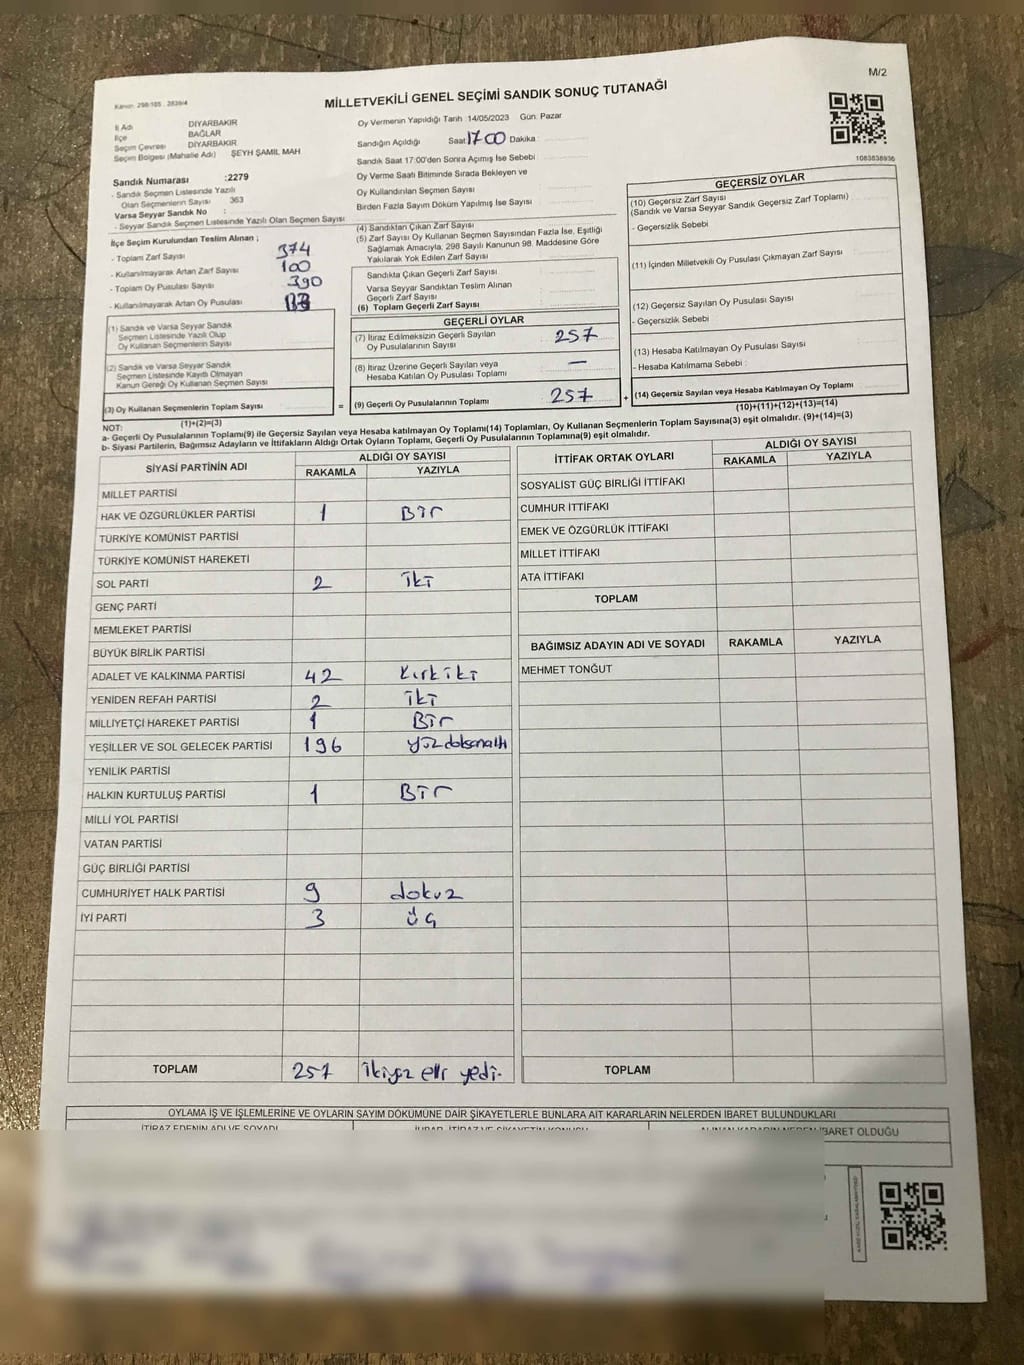 M/2
Kanun: 298/105 , 2839/4
MİLLETVEKİLİ GENEL SEÇİMİ SANDIK SONUÇ TUTANAĞI
İl Adı DİYARBAKIR
İlçe BAĞLAR
Seçim Çevresi DİYARBAKIR
Seçim Bölgesi (Mahalle Adı) ŞEYH ŞAMİL MAH
Oy Vermenin Yapıldığı Tarih :14/05/2023 Gün: Pazar
Sandığın Açıldığı Saat 17 00 Dakika :
Sandık Saat 17:00'den Sonra Açımış İse Sebebi :
Oy Verme Saati Bitiminde Sırada Bekleyen ve
Oy Kullandırılan Seçmen Sayısı
Birden Fazla Sayım Döküm Yapılmış İse Sayısı
1083838936
Sandık Numarası :2279
- Sandık Seçmen Listesinde Yazılı
Olan Seçmenlerin Sayısı 363
Varsa Seyyar Sandık No :
- Seyyar Sandık Seçmen Listesinde Yazılı Olan Seçmen Sayısı
İlçe Seçim Kurulundan Teslim Alınan ;
- Toplam Zarf Sayısı 374
- Kullanılmayarak Artan Zarf Sayısı 100
- Toplam Oy Pusulası Sayısı 390
- Kullanılmayarak Artan Oy Pusulası
(1) Sandık ve Varsa Seyyar Sandık
Seçmen Listesinde Yazılı Olup
Oy Kullanan Seçmenlerin Sayısı
(2) Sandık ve Varsa Seyyar Sandık
Seçmen Listesinde Kayıtlı Olmayan
Kanun Gereği Oy Kullanan Seçmen Sayısı
(3) Oy Kullanan Seçmenlerin Toplam Sayısı
(1)+(2)=(3)
=
(4) Sandıktan Çıkan Zarf Sayısı
(5) Zarf Sayısı Oy Kullanan Seçmen Sayısından Fazla İse, Eşitliği
Sağlamak Amacıyla, 298 Sayılı Kanunun 98. Maddesine Göre
Yakılarak Yok Edilen Zarf Sayısı
Sandıkta Çıkan Geçerli Zarf Sayısı
Varsa Seyyar Sandıktan Teslim Alınan
Geçerli Zarf Sayısı
(6) Toplam Geçerli Zarf Sayısı
GEÇERLİ OYLAR
(7) İtiraz Edilmeksizin Geçerli Sayılan
Oy Pusulalarının Sayısı 257
(8) İtiraz Üzerine Geçerli Sayılan veya
Hesaba Katılan Oy Pusulası Toplamı —
(9) Geçerli Oy Pusulalarının Toplamı 257
+
GEÇERSİZ OYLAR
(10) Geçersiz Zarf Sayısı
(Sandık ve Varsa Seyyar Sandık Geçersiz Zarf Toplamı)
- Geçersizlik Sebebi
(11) İçinden Milletvekili Oy Pusulası Çıkmayan Zarf Sayısı
(12) Geçersiz Sayılan Oy Pusulası Sayısı
- Geçersizlik Sebebi
(13) Hesaba Katılmayan Oy Pusulası Sayısı
- Hesaba Katılmama Sebebi :
(14) Geçersiz Sayılan veya Hesaba Katılmayan Oy Toplamı
(10)+(11)+(12)+(13)=(14)
NOT:
a- Geçerli Oy Pusulalarının Toplamı(9) ile Geçersiz Sayılan veya Hesaba katılmayan Oy Toplamı(14) Toplamları, Oy Kullanan Seçmenlerin Toplam Sayısına(3) eşit olmalıdır. (9)+(14)=(3)
b- Siyasi Partilerin, Bağımsız Adayların ve İttifakların Aldığı Ortak Oyların Toplamı, Geçerli Oy Pusulalarının Toplamına(9) eşit olmalıdır.
SİYASİ PARTİNİN ADI ALDIĞI OY SAYISI
RAKAMLA YAZIYLA
MİLLET PARTİSİ
HAK VE ÖZGÜRLÜKLER PARTİSİ 1 Bir
TÜRKİYE KOMÜNİST PARTİSİ
TÜRKİYE KOMÜNİST HAREKETİ
SOL PARTİ 2 iki
GENÇ PARTİ
MEMLEKET PARTİSİ
BÜYÜK BİRLİK PARTİSİ
ADALET VE KALKINMA PARTİSİ 42 Kırk iki
YENİDEN REFAH PARTİSİ 2 iki
MİLLİYETÇİ HAREKET PARTİSİ 1 Bir
YEŞİLLER VE SOL GELECEK PARTİSİ 196 yüzdoksanaltı
YENİLİK PARTİSİ
HALKIN KURTULUŞ PARTİSİ 1 Bir
MİLLİ YOL PARTİSİ
VATAN PARTİSİ
GÜÇ BİRLİĞİ PARTİSİ
CUMHURİYET HALK PARTİSİ 9 dokuz
İYİ PARTİ 3 üç
TOPLAM 257 ikiyüz elli yedi.
İTTİFAK ORTAK OYLARI ALDIĞI OY SAYISI
RAKAMLA YAZIYLA
SOSYALİST GÜÇ BİRLİĞİ İTTİFAKI
CUMHUR İTTİFAKI
EMEK VE ÖZGÜRLÜK İTTİFAKI
MİLLET İTTİFAKI
ATA İTTİFAKI
TOPLAM
BAĞIMSIZ ADAYIN ADI VE SOYADI RAKAMLA YAZIYLA
MEHMET TONĞUT
TOPLAM
OYLAMA İŞ VE İŞLEMLERİNE VE OYLARIN SAYIM DÖKÜMÜNE DAİR ŞİKAYETLERLE BUNLARA AİT KARARLARIN NELERDEN İBARET BULUNDUKLARI
İTİRAZ EDENİN ADI VE SOYADI
İBARET OLDUĞU